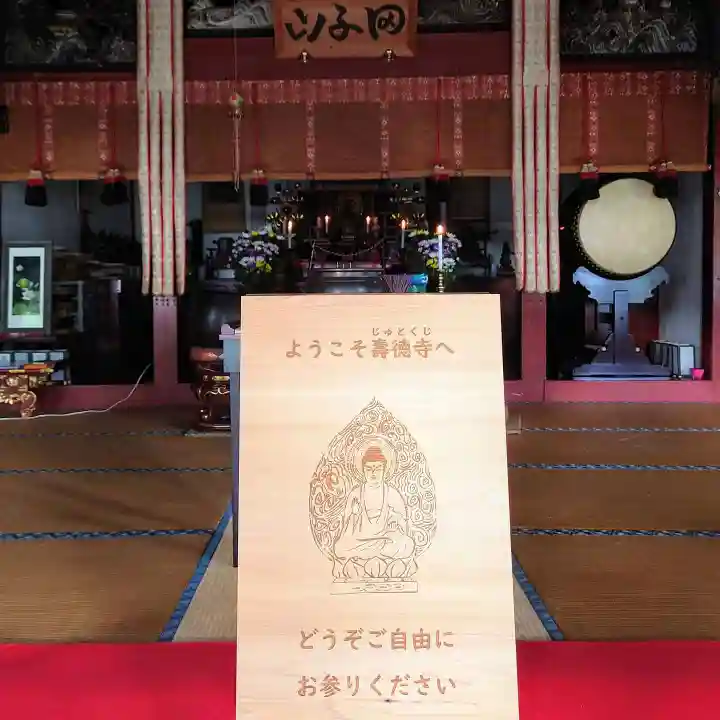 岡子山
じゅとくじ
ようこそ壽徳寺へ
どうぞご自由に
お参りください